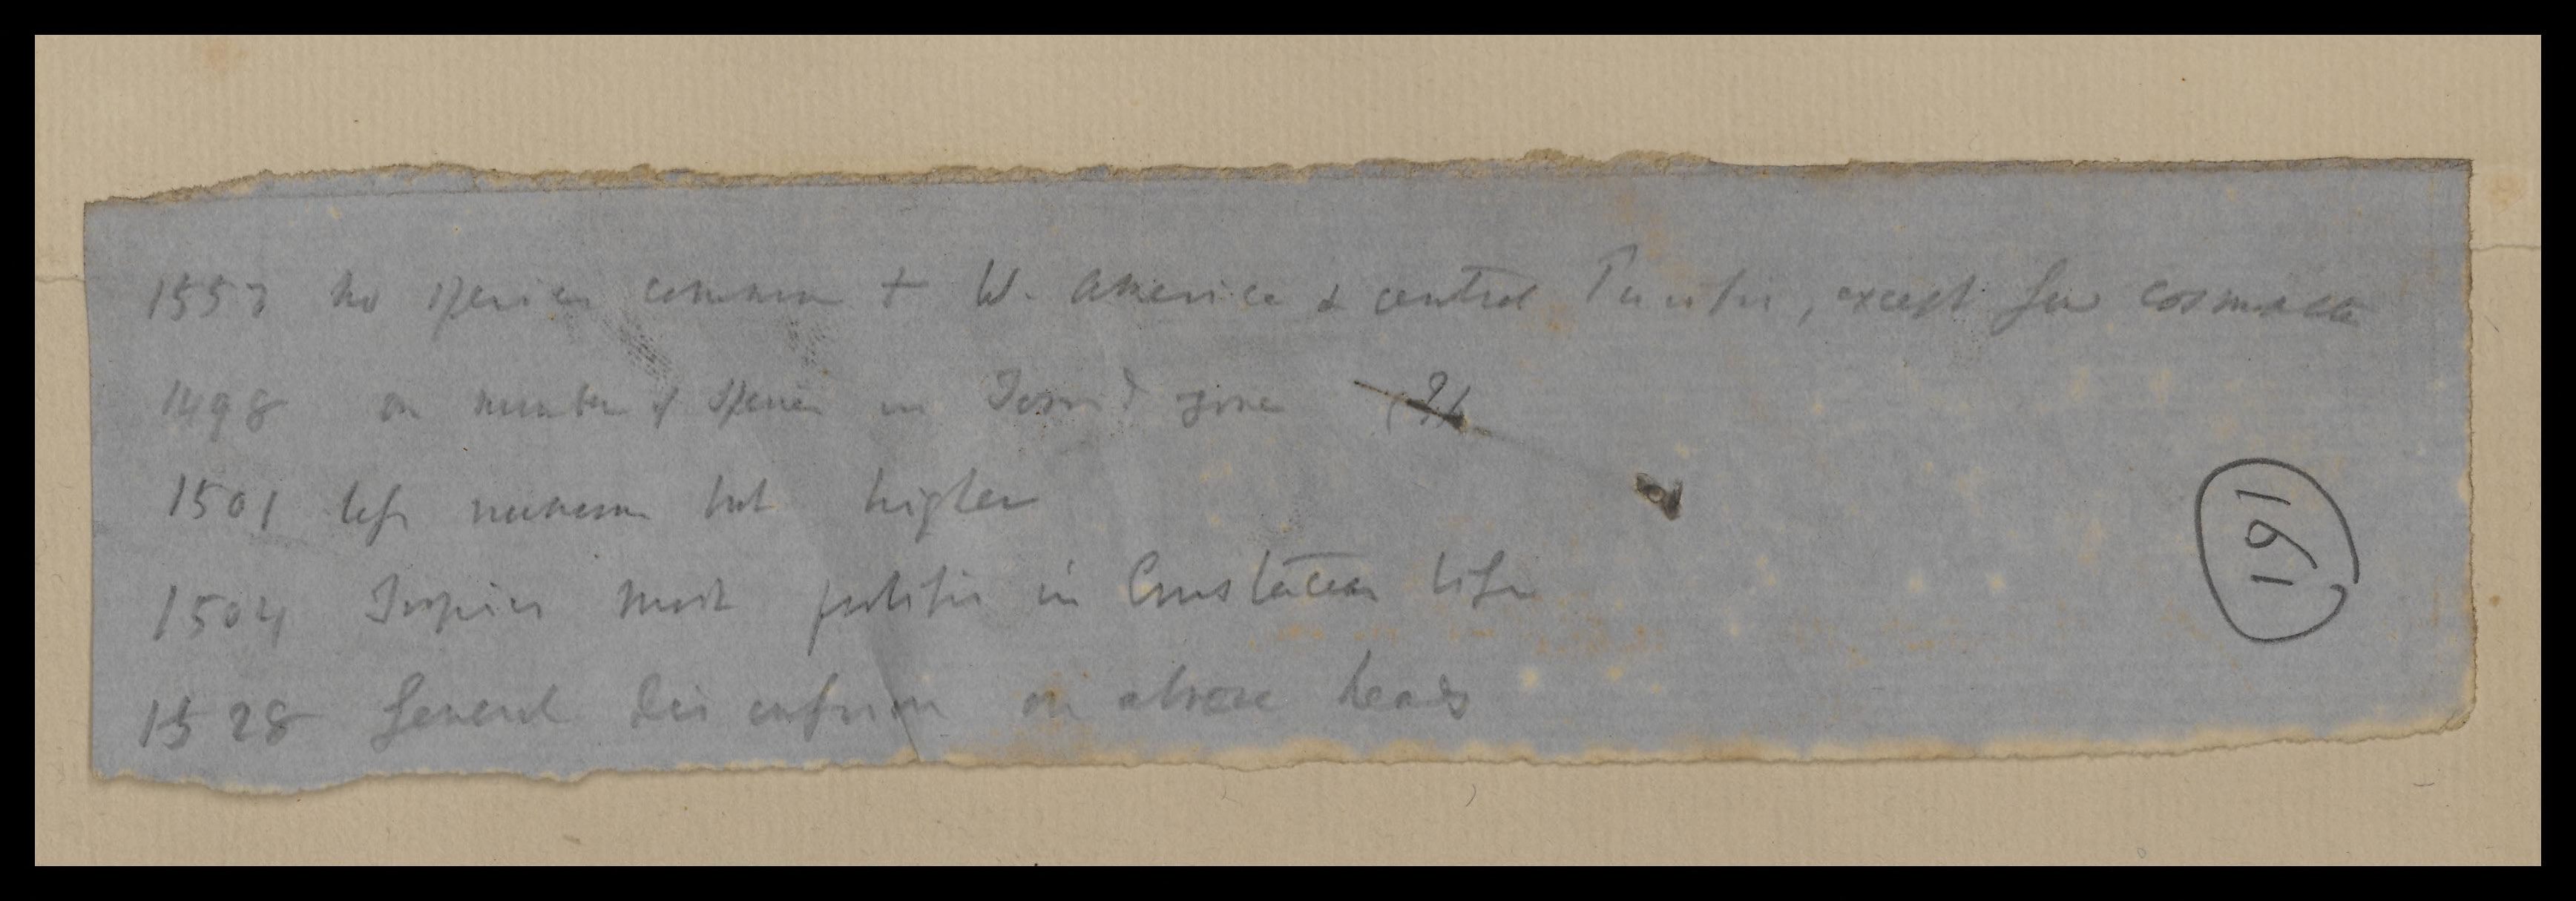 1553 no species common to W. America & central Pacific, except few
1498 on number of species in Torrid zone (?)
1501 less numerous but higher
1504 Tropics most prolific in Crustacean life
1528 General discussion on above heads
191